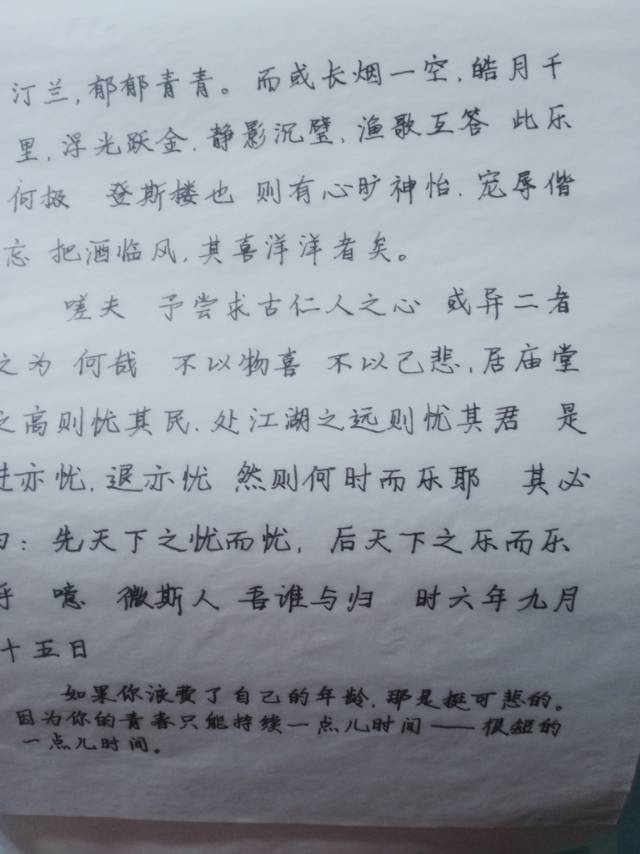 汀兰,郁郁青青。而或长烟一空,皓月千
里,浮光跃金,静影沉璧,渔歌互答 此乐
何极 登斯楼也 则有心旷神怡,宠辱偕
忘 把酒临风,其喜洋洋者矣。
嗟夫 予尝求古仁人之心 或异二者
之为 何哉 不以物喜 不以己悲,居庙堂
之高则忧其民,处江湖之远则忧其君 是
进亦忧,退亦忧 然则何时而乐耶 其必
曰:先天下之忧而忧,后天下之乐而乐
乎 噫 微斯人 吾谁与归 时六年九月
十五日
如果你浪费了自己的年龄,那是挺可悲的。
因为你的青春只能持续一点儿时间——很短的
一点儿时间。